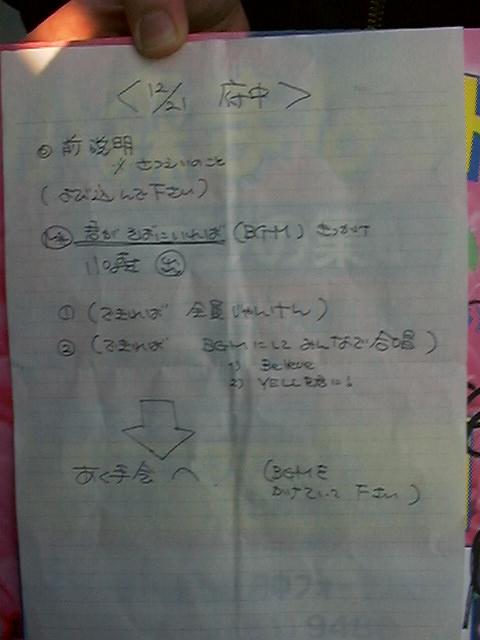 <12/21 府中>
◎ 前説明
〃 さつえいのこと
(よび込んで下さい)
君がそばにいれば (BGM) きっかけ
出
① (できれば 全員じゃんけん)
② (できれば BGMにして みんなで合唱)
1) Believe
2) YELLを君に!
あく手会へ (BGMを
かけていて下さい)